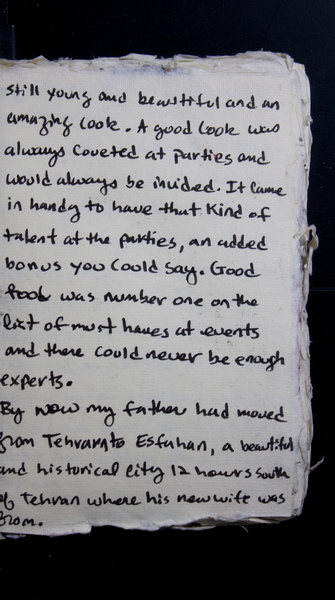 still young and beautiful and an
amazing cook. A good cook was
always coveted at parties and
would always be invided. It came
in handy to have that kind of
talent at the parties, an added
bonus you could say. Good
food was number one on the
list of must haves at events
and there could never be enough
experts.
By now my father had moved
from Tehran to Esfahan, a beautiful
and historical city 12 hours south
of Tehran where his new wife was
from.